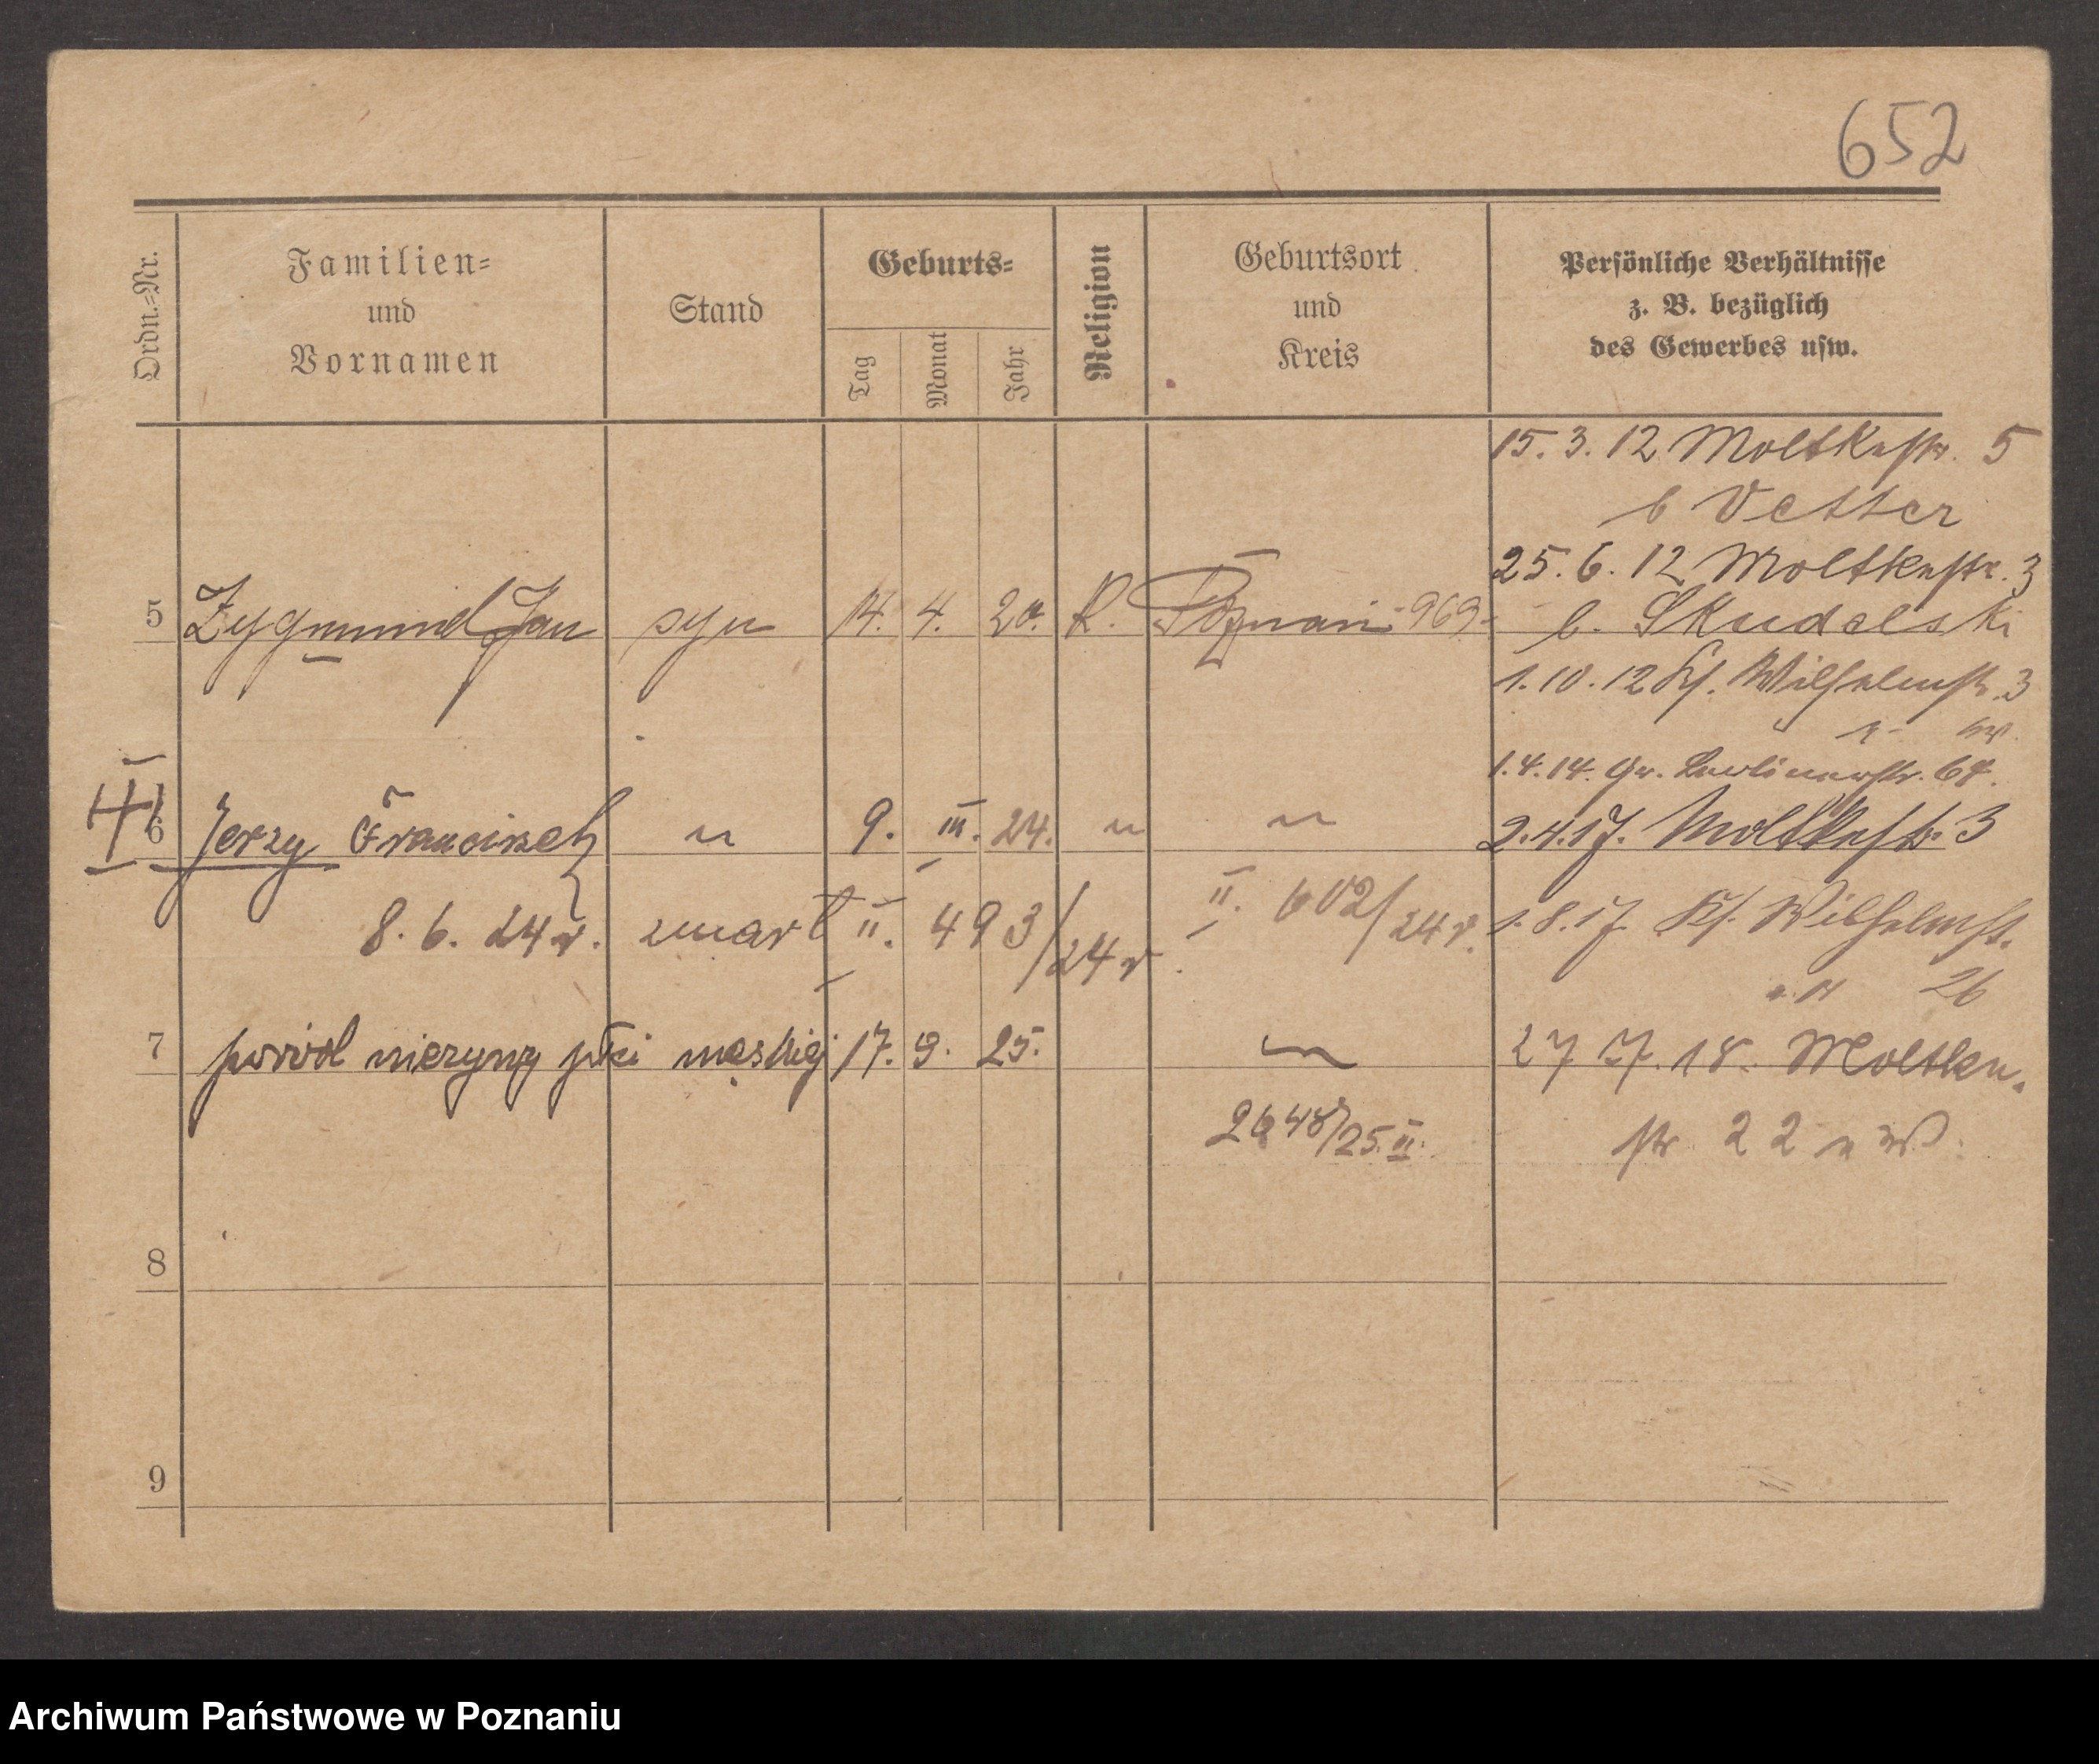 652
Ordn.-Nr.
Familien-
und
Vornamen
Stand
Geburts-
Tag
Monat
Jahr
Religion
Geburtsort
und
Kreis
Persönliche Verhältnisse
z. B. bezüglich
des Gewerbes usw.
15. 3. 12 Moltkestr. 5
b Vetter
25. 6. 12 Moltkestr. 3
5 Zygmund Jan syn 14. 4. 20. K. Poznań 969
b. Skudelski
1. 10. 12 Kl. Wilhelmstr. 3
1. 4. 14. Gr. Berlinerstr. 64.
6 Jerzy Franciszek " 9. III. 24. " "
2. 4. 17. Moltkestr. 3
8. 6. 24 r. zmarł II. 493/24 r. II. 602/24 r.
1. 8. 17. Kl. Wilhelmst.
26
7 poród nieżywy płci męskiej 17. 9. 25. "
27 7. 18. Moltke-
str 22
2648/25. II.
8
9
Archiwum Państwowe w Poznaniu